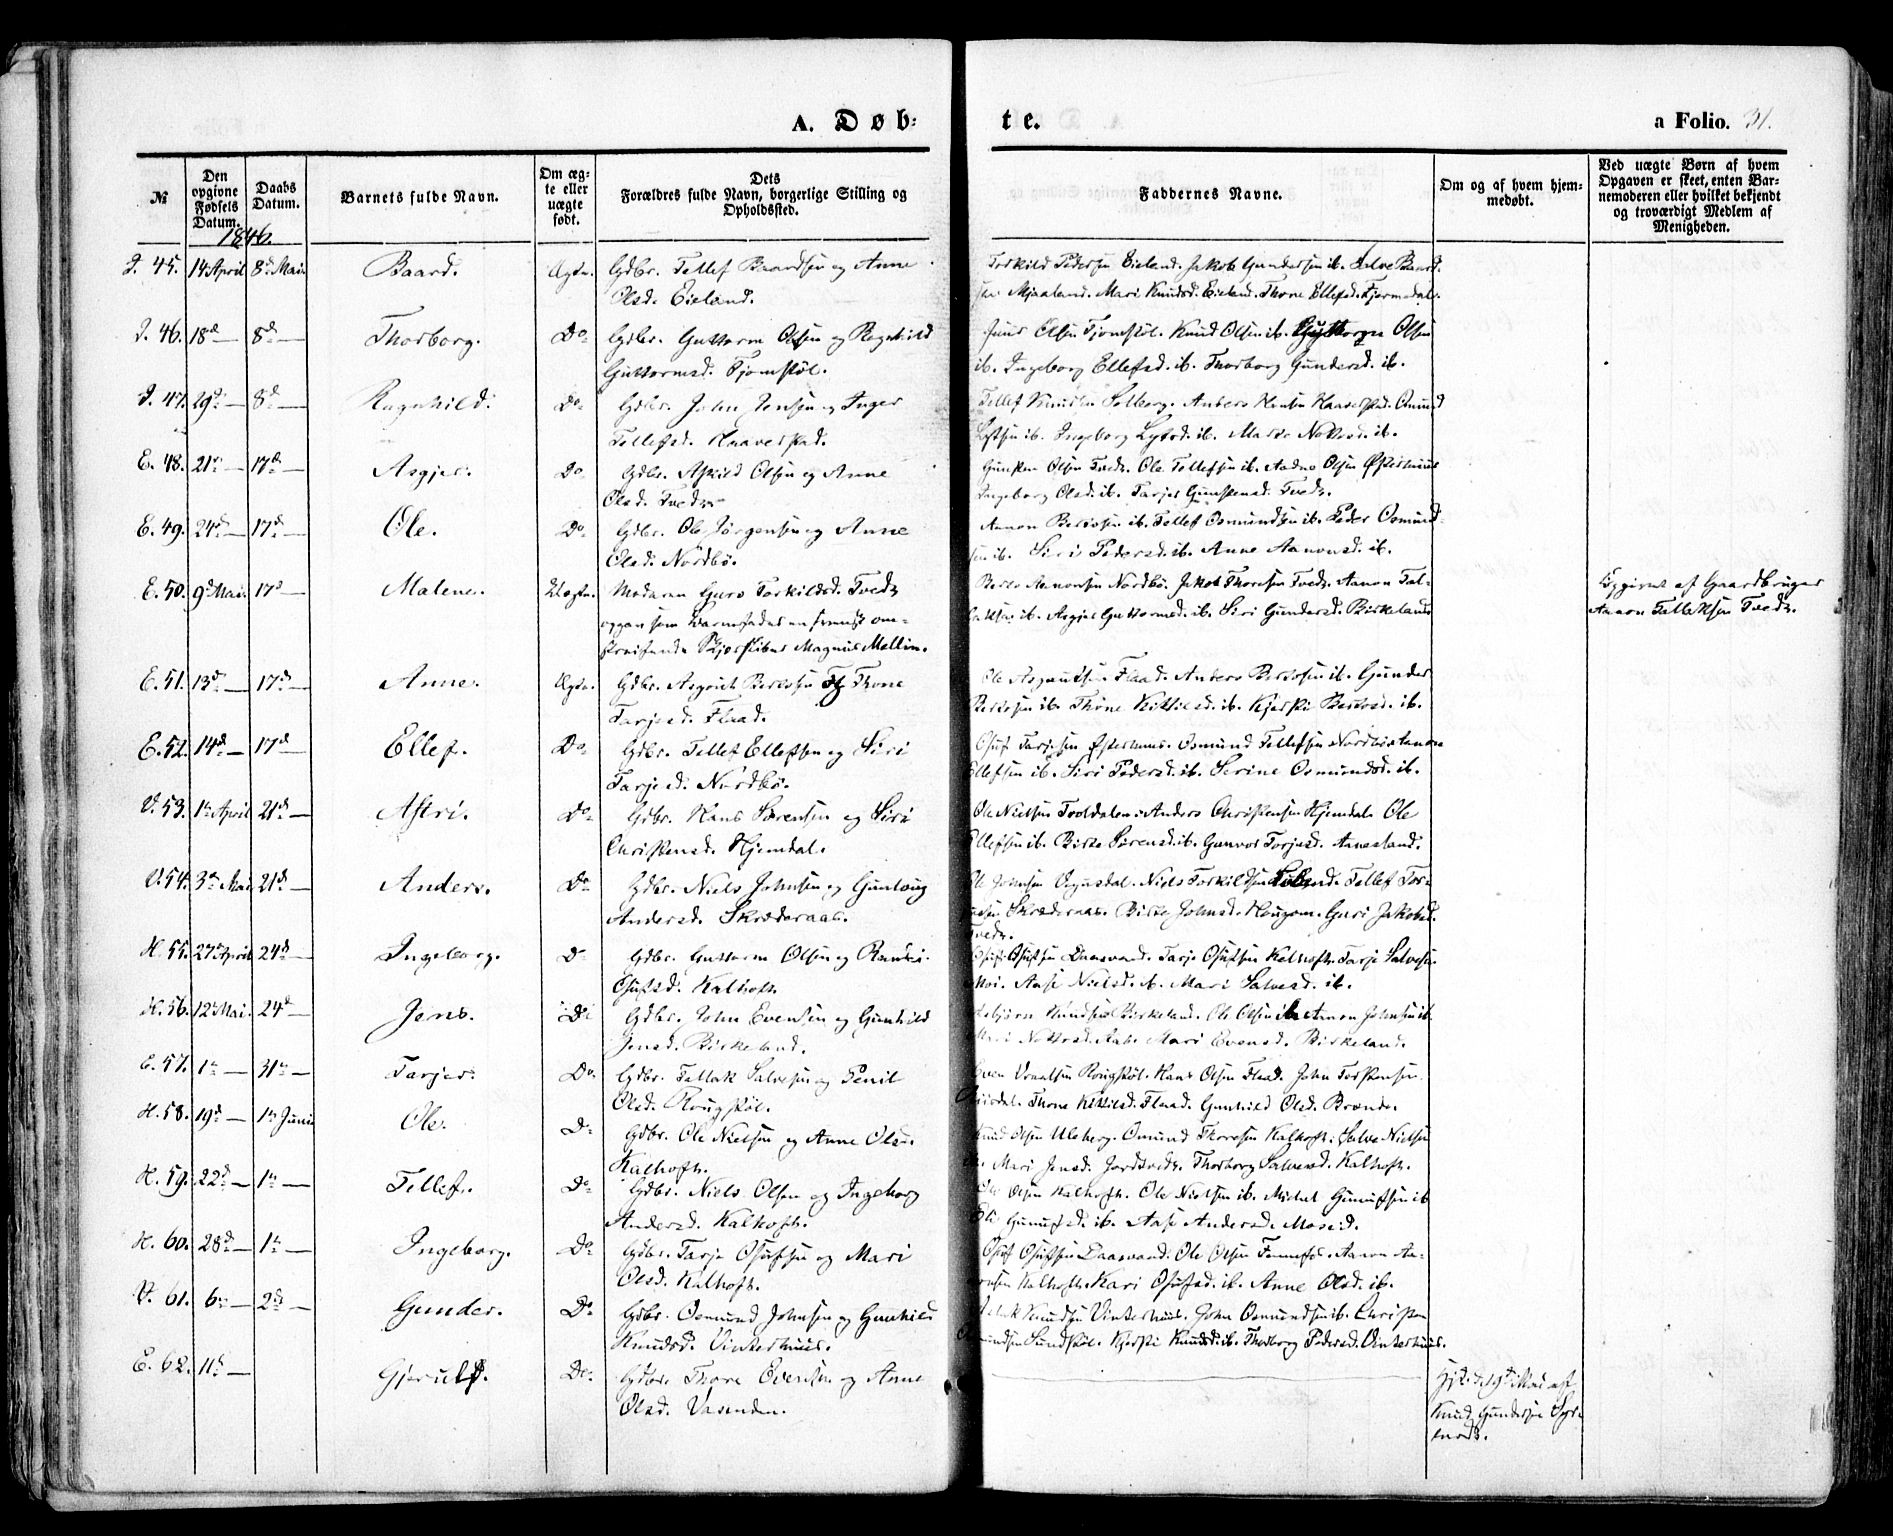 A. Døb-
te.
a Folio. 31.
№
Den opgivne Fødsels Datum.
Daabs Datum.
Barnets fulde Navn.
Om ægte eller uægte født.
Dets Forældres fulde Navn, borgerlige Stilling og Opholdssted.
Faddernes Navne.
Om og af hvem hjemmedøbt.
Ved uægte Børn af hvem Opgaven er skeet, enten Barnemoderen eller hvilket bekjendt og troværdigt Medlem af Menigheden.
1846.
I. 45. 14 April 8de Mai. Baard. Ægte. Gdbr. Tellef Baardsen og Anne
Olsd. Eieland.
Torkild Pedersen Eieland. Jakob Gundersen ib. Salve Baard-
sen Mjaaland. Mari Knudsd. Eieland. Thone Ellefsd. Fjermedal.
I. 46. 18de 8de Thorborg. Do Gdbr. Guttorm Olsen og Ragnhild
Guttormsd. Tjomstøl.
Jens Olsen Tjomstøl. Knud Olsen ib. Guttorm Olsen
ib. Ingeborg Ellefsd. ib. Thorborg Gundersd. ib.
I. 47. 29de 8de Ragnhild. Do Gdbr. John Jensen og Inger
Tellefsd. Haaverstad.
Tellef Knudsen Solberg. Anders Hansen Haaverstad. Omund
ib. Ingeborg ib.
E. 48. 21de 17de Asgjer. Do Gdbr. Askild Olsen og Anne
Olsd. Tvedt.
Gunsten Olsen Tvedt. Ole Tellefsen ib. Aadne Olsen Østerhuus
Ingeborg Olsd. ib. Tarjer Gunstensd. Tvedt.
E. 49. 24de 17de Ole. Do Gdbr. Ole Jørgensen og Anne
Olsd. Nordbø.
Aanon Berosen ib. Tellef Osmundsen ib. Peder Osmund-
sen ib. Siri Pedersd. ib. Anne Aanonsd. ib.
E. 50. 9de Mai. 17de Malene. Uægte. Moderen Guro Torkildsd. Tvedt
opgav som Barnefader en svensk om-
streifende Magnus Mellin.
Bero Aanonsen Nordbø. Jakob Thoresen Tvedt. Aanon Tal-
leksen ib. Asgjer Guttormsd. ib. Siri Gundersd. Birkeland
Opgivet af Gaardbruger
Aanon Talleksen Tvedt.
E. 51. 13de 17de Anne. Ægte. Gdbr. Asgout Berosen og Thone
Tarjesd. Flaad.
Ole Asgoutsen Flaad. Anders Berosen ib. Gunder
Berosen ib. Thone Kittilsd. ib. Kjersti Berosd. ib.
E. 52. 14de 17de Ellef. Do Gdbr. Tellef Ellefsen og Siri
Tarjesd. Nordbø.
Osuf Tarjesen Østerhuus. Osmund Tellefsen Nordbø. Aanon
Ellefsen ib. Siri Pedersd. ib. Serine Osmundsd. ib.
V. 53. 1ste April 21de Astri. Do Gdbr. Hans Sørensen og Siri
Christensd. Hjemdal.
Ole Nielsen Toldalen. Anders Christensen Hjemdal. Ole
Ellefsen ib. Birte Sørensd. ib. Gunvor Torjusd. Aanesland.
V. 54. 3die Mai 21de Anders. Do Gdbr. Niels Johnsen og Gunloug
Andersd. Skræderaas.
Ole Johnsen Vegusdal. Niels Torkildsen Tellef Tor-
Skræderaas. Birte Johnsd. Hougom. Guri Jakobsd.
Tvedt.
H. 55. 27de April 24de Ingeborg. Do Gdbr. Guttorm Olsen og Randi
Osufsd. Kalhoft.
Osuf Osufsen Daasvand. Tarje Osufsen Kalhoft. Tarje Salvesen
Moi. Aase Nielsd. ib. Mari Salvesd. ib.
H. 56. 12te Mai. 24de Jens. Do Gdbr. John Evensen og Gunhild
Jensd. Birkeland.
Knudsen Birkeland. Ole Olsen ib. Aanon Johnsen ib.
Mari Evensd. Birkeland.
E. 57. 1ste 31te Tarjer. Do Gdbr. Tallak Salvesen og Penil
Olsd. Rougstøl.
Even Rougstøl. Hans Olsen Flaad. John Torstensen
Thone Kittilsd. Flaad. Gunhild Olsd. Brænde.
H. 58. 19de 1ste Juni Ole. Do Gdbr. Ole Nielsen og Anne Olsd.
Kalhoft.
Knud Olsen Uleberg. Omund Thoresen Kalhoft. Salve Nielsen
ib. Mari Jensd. Thorborg Salvesd. Kalhoft.
H. 59. 22de 1ste Tellef. Do Gdbr. Niels Olsen og Ingeborg
Andersd. Kalhoft.
Ole Olsen Kalhoft. Ole Nielsen ib. Michel Gunufsen ib
Gunufsd. ib. Aase Andersd. Moseid.
H. 60. 28de 1ste Ingeborg. Do Gdbr. Tarje Osufsen og Mari
Olsd. Kalhoft.
Osuf Osufsen Daasvand. Ole Olsen Aanon Aa-
nonsen Kalhoft. Kari Osufsd. ib. Anne Olsd. ib.
V. 61. 6te 2den Gunder. Do Gdbr. Osmund Johnsen og Gunhild
Knudsd. Vinterhuus.
Knudsen Vinterhuus. John Osmundsen ib. Christen
Sundstøl. Kjersti Knudsd. ib. Thorborg Pedersd. Vinterhuus.
E. 62. 11te Gjerulf. Do Gdbr. Thore Evensen og Anne
Olsd. Vasenden.
Hjd. d. 19de Mai af
Knud Gundersen